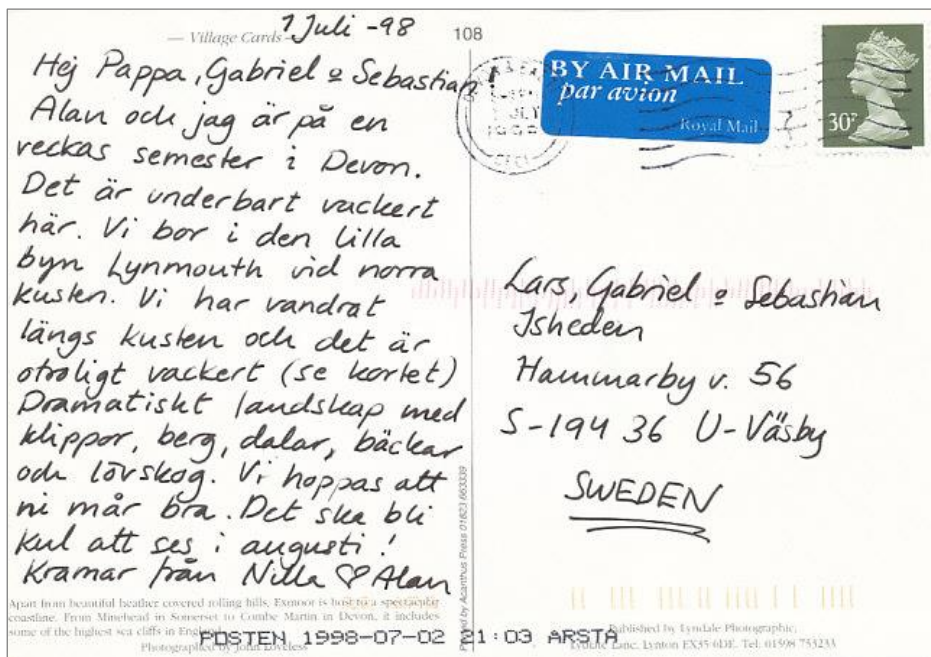 — Village Cards —
1 Juli -98
108
Hej Pappa, Gabriel o Sebastian!
Alan och jag är på en
veckas semester i Devon.
Det är underbart vackert
här. Vi bor i den lilla
byn Lynmouth vid norra
kusten. Vi har vandrat
längs kusten och det är
otroligt vackert (se kortet)
Dramatiskt landskap med
klippor, berg, dalar, bäckar
och lövskog. Vi hoppas att
ni mår bra. Det ska bli
kul att ses i augusti!
Kramar från Nilla ♡ Alan
Apart from beautiful heather covered rolling hills, Exmoor is host to a spectacular
coastline. From Minehead in Somerset to Combe Martin in Devon, it includes
some of the highest sea cliffs in England.
Photographed by John Loveless
Printed by Acanthus Press 01823 663339
BY AIR MAIL
par avion
Royal Mail
30P
Lars, Gabriel o Sebastian
Isheden
Hammarby v. 56
S-194 36 U-Väsby
SWEDEN
POSTEN 1998-07-02 21:03 ARSTA
Published by Lyndale Photographic,
Lyndale Lane, Lynton EX35 6DE. Tel: 01598 753233